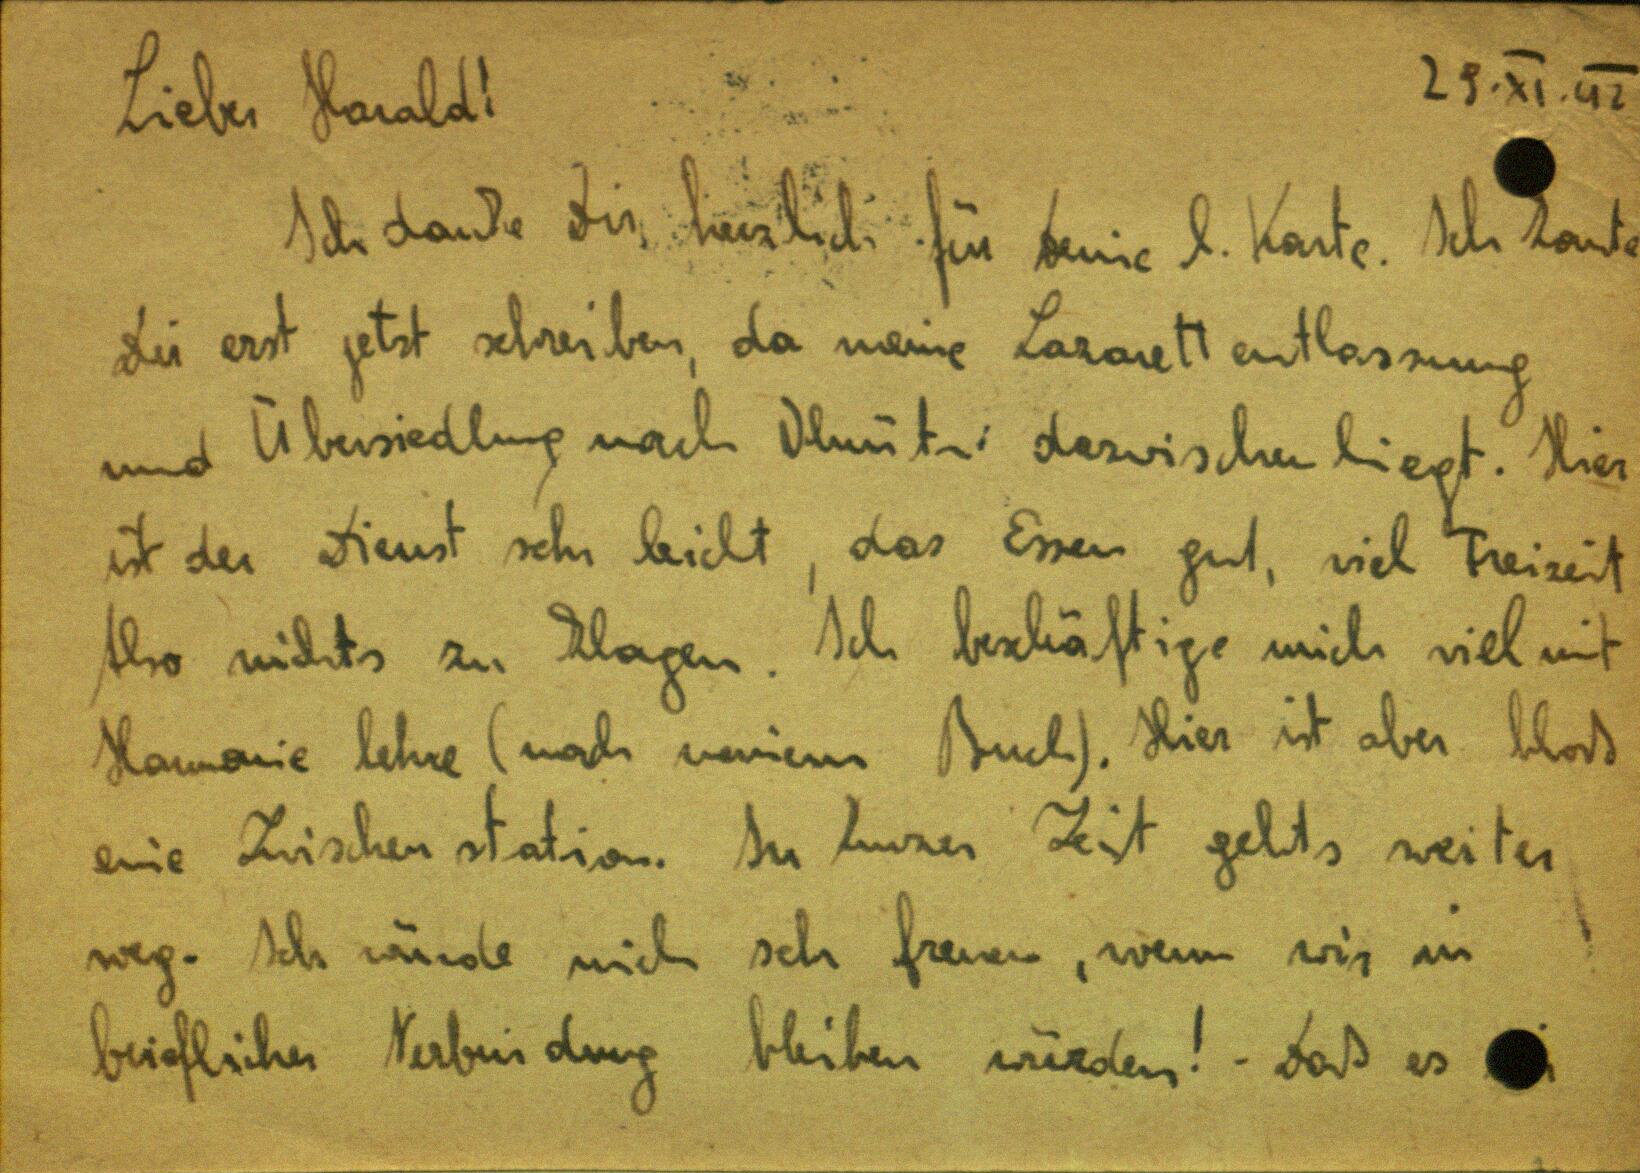 Lieber Harald!
29.XI.42
Ich danke Dir herzlich für Deine l. Karte. Ich konnte
Dir erst jetzt schreiben, da meine Lazarettentlassung
und Übersiedlung nach Olmütz dazwischen liegt. Hier
ist der Dienst sehr leicht, das Essen gut, viel Freizeit
Also nichts zu klagen. Ich beschäftige mich viel mit
Harmonielehre (nach meinem Buch). Hier ist aber bloß
eine Zwischenstation. In kurzer Zeit gehts weiter
weg. Ich würde mich sehr freuen, wenn wir in
brieflicher Verbindung bleiben würden! - Daß es